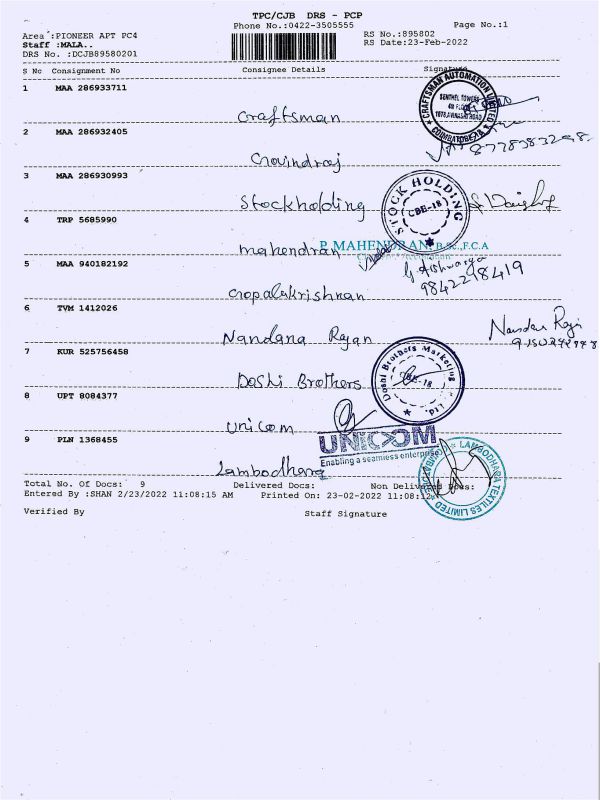 TPC/CJB DRS - PCP
Phone No.:0422-3505555
Page No.:1
Area :PIONEER APT PC4
RS No.:895802
Staff :MALA..
RS Date:23-Feb-2022
DRS No. :DCJB89580201
S No Consignment No Consignee Details Signature
1 MAA 286933711
Craftsman
CRAFTSMAN AUTOMATION LIMITED
SENTHEL TOWERS
COIMBATORE
2 MAA 286932405
Govindraj
8778383298
3 MAA 286930993
Stockholding
STOCK HOLDING
CBE-18
4 TRP 5685990
mahendran
P. MAHENDRAN, B.Sc., F.C.A
5 MAA 940182192
Gopalakrishnan
G Aishwarya
9842298419
6 TVM 1412026
Nandana Rajan
7 KUR 525756458
Doshi Brothers
Doshi Brothers Marketing
CBE-18
8 UPT 8084377
Unicom
UNICOM
Enabling a seamless enterprise
9 PLN 1368455
Lambodhara
LAMBODHARA TEXTILES LIMITED
Total No. Of Docs: 9 Delivered Docs: Non Delivered Docs:
Entered By :SHAN 2/23/2022 11:08:15 AM Printed On: 23-02-2022 11:08:12
Verified By Staff Signature